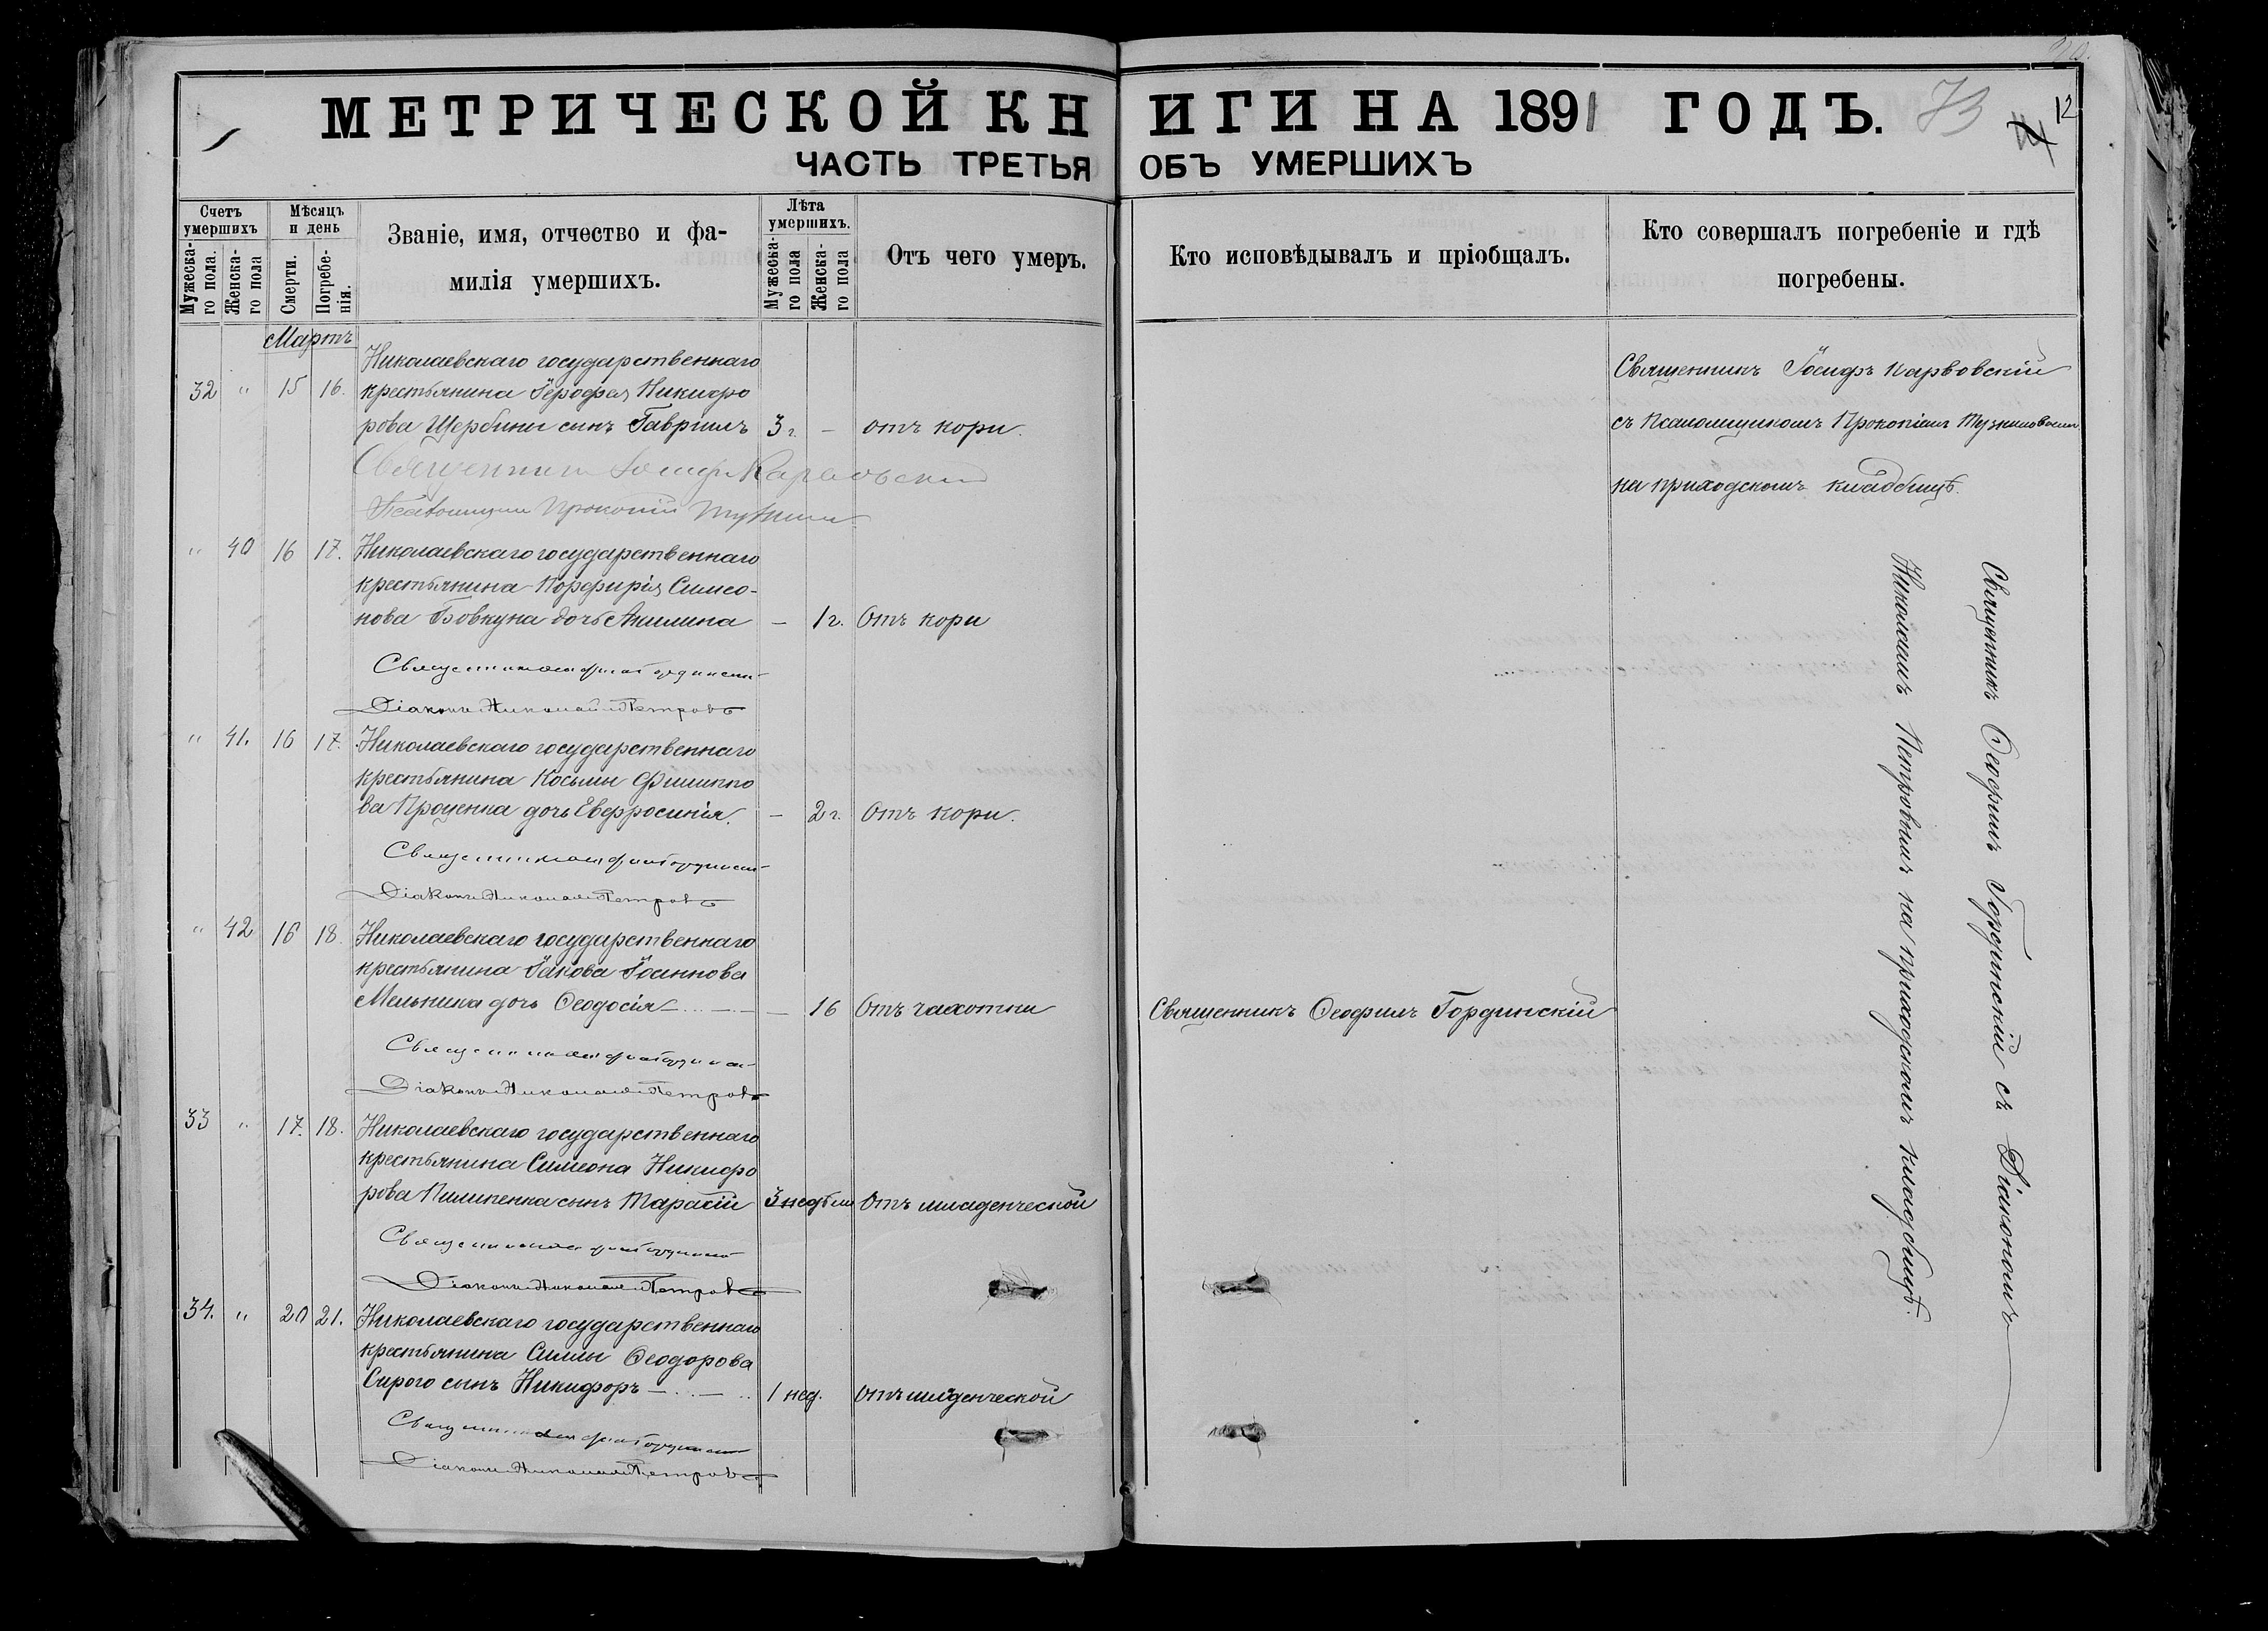 МЕТРИЧЕСКОЙ КНИГИ НА 1891 ГОДЪ.
73
12
ЧАСТЬ ТРЕТЬЯ ОБЪ УМЕРШИХЪ
Счетъ умершихъ
Мужеска-го пола.
Женска-го пола
Мѣсяцъ и день
Смерти.
Погребе-нія.
Званіе, имя, отчество и фа-
милія умершихъ.
Лѣта умершихъ.
Мужеска-го пола
Женска-го пола
Отъ чего умеръ.
Кто исповѣдывалъ и пріобщалъ.
Кто совершалъ погребеніе и гдѣ
погребены.
Мартъ
Николаевскаго государственнаго
32 " 15 16. крестьянина Іерофея Никифо
рова Щербины сынъ Гавріилъ 3 г. – отъ кори.
Священникъ Іосифъ Карвовскій
съ Псаломщикомъ Прокопіемъ
на приходскомъ кладбищѣ.
Священникъ Іосифъ Карвовскій
Псаломщикъ Прокопій
" 40 16 17. Николаевскаго государственнаго
крестьянина Порфирія Симео-
нова Бовкуна дочь Акилина – 1 г. Отъ кори
Діаконъ Николай Петровъ
" 41. 16 17. Николаевскаго государственнаго
крестьянина Косьмы Филиппо
ва Проценка дочь Евфросинія. – 2 г. Отъ кори.
Діаконъ Николай Петровъ
" 42 16 18. Николаевскаго государственнаго
крестьянина Іакова Іоаннова
Мельника дочь Ѳеодосія – 16 Отъ чахотки Священникъ Ѳеофилъ Гординскій
Діаконъ Николай Петровъ
33 " 17. 18. Николаевскаго государственнаго
крестьянина Симеона Никифо
рова Пилипенка сынъ Тарасій 3 недѣли Отъ младенческой
Діаконъ Николай Петровъ
34. " 20 21. Николаевскаго государственнаго
крестьянина Силы Ѳеодорова
Сирого сынъ Никифоръ 1 нед. отъ младенческой
Діаконъ Николай Петровъ
Священникъ Ѳеофилъ Гординскій съ Діакономъ
Николаемъ Петровымъ на приходскомъ кладбищѣ.